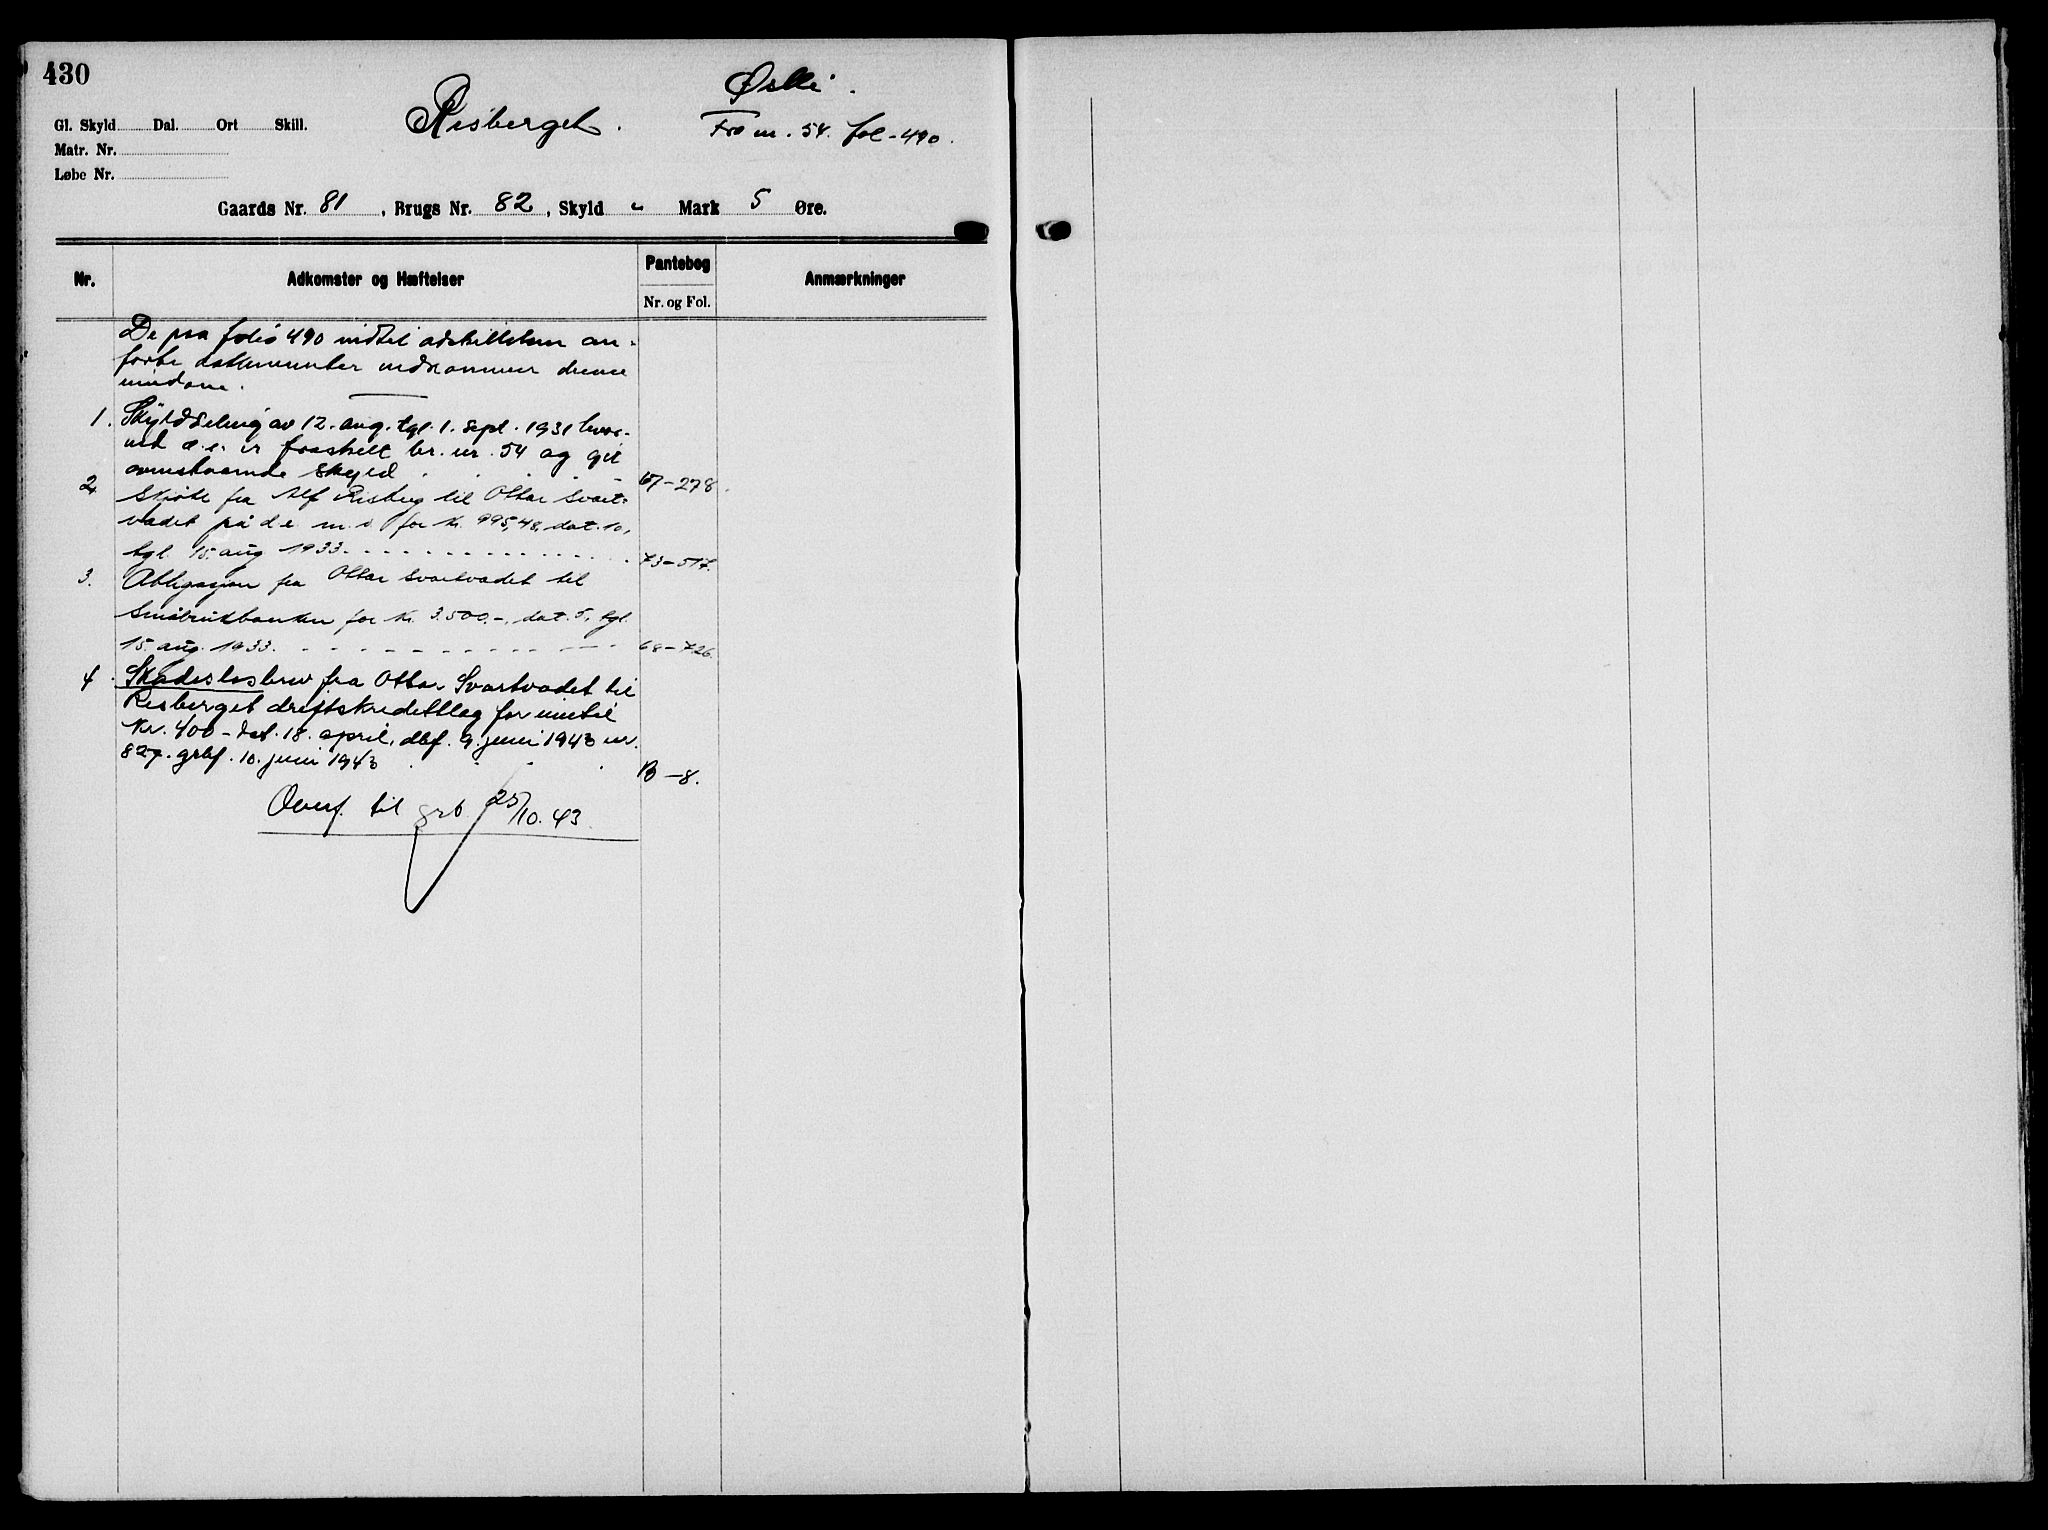 430
Risberget. Østli.
Fra nr. 54. fol-490.
Gl. Skyld Dal. Ort Skill.
Matr. Nr.
Løbe Nr.
Gaards Nr. 81, Brugs Nr. 82, Skyld - Mark 5 Øre.
Nr. Adkomster og Hæftelser Pantebog Nr. og Fol. Anmærkninger
De paa folio 490 indtil adskillelsen an-
førte dokumenter vedkommer denne
eiendom.
1. Skylddeling av 12. aug. tgl. 1. sept. 1931 hvor-
ved d.e. er fraskilt br. nr. 54 og git
ovenstaaende skyld 67-278.
2. Skjøte fra Alf Risberg til Ottar Svart-
vadet på d.e. m.v. for kr. 995,48, dat. 10,
tgl. 15. aug 1933. 73-517.
3. Obligasjon fra Ottar Svartvadet til
Småbrukbanken for kr. 3.500.-, dat. 5, tgl.
15. aug. 1933. 68-726.
4. Skadesløsbrev fra Ottar Svartvadet til
Risberget driftskredittlag for inntil
kr. 400 - dat. 18. april, dbf. 9. juni 1943 nr.
827. grbf. 10. juni 1943 B-8.
Overf. til grb 25/10.43.